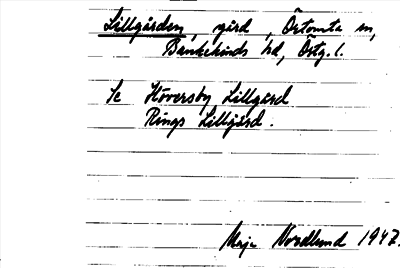 Lillgården, gård, Örtomta sn,
Bankekinds hd, Östg. l.
Se Hoversby Lillgård
Rings Lillgård.
Maja Nordlund 1947.